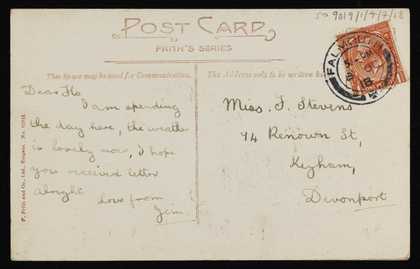 50 9019/1/4/7/18
POST CARD
FRITH'S SERIES
This Space may be used for Communication.
The Address only to be written here
FALMOUTH
Dear Flo
I am spending
the day here, the weather
is lovely now, I hope
you received letter
alright
Love from
Jim.
Miss. F. Stevens
74 Renown St,
Keyham,
Devonport
F. Frith and Co., Ltd., Reigate. No.